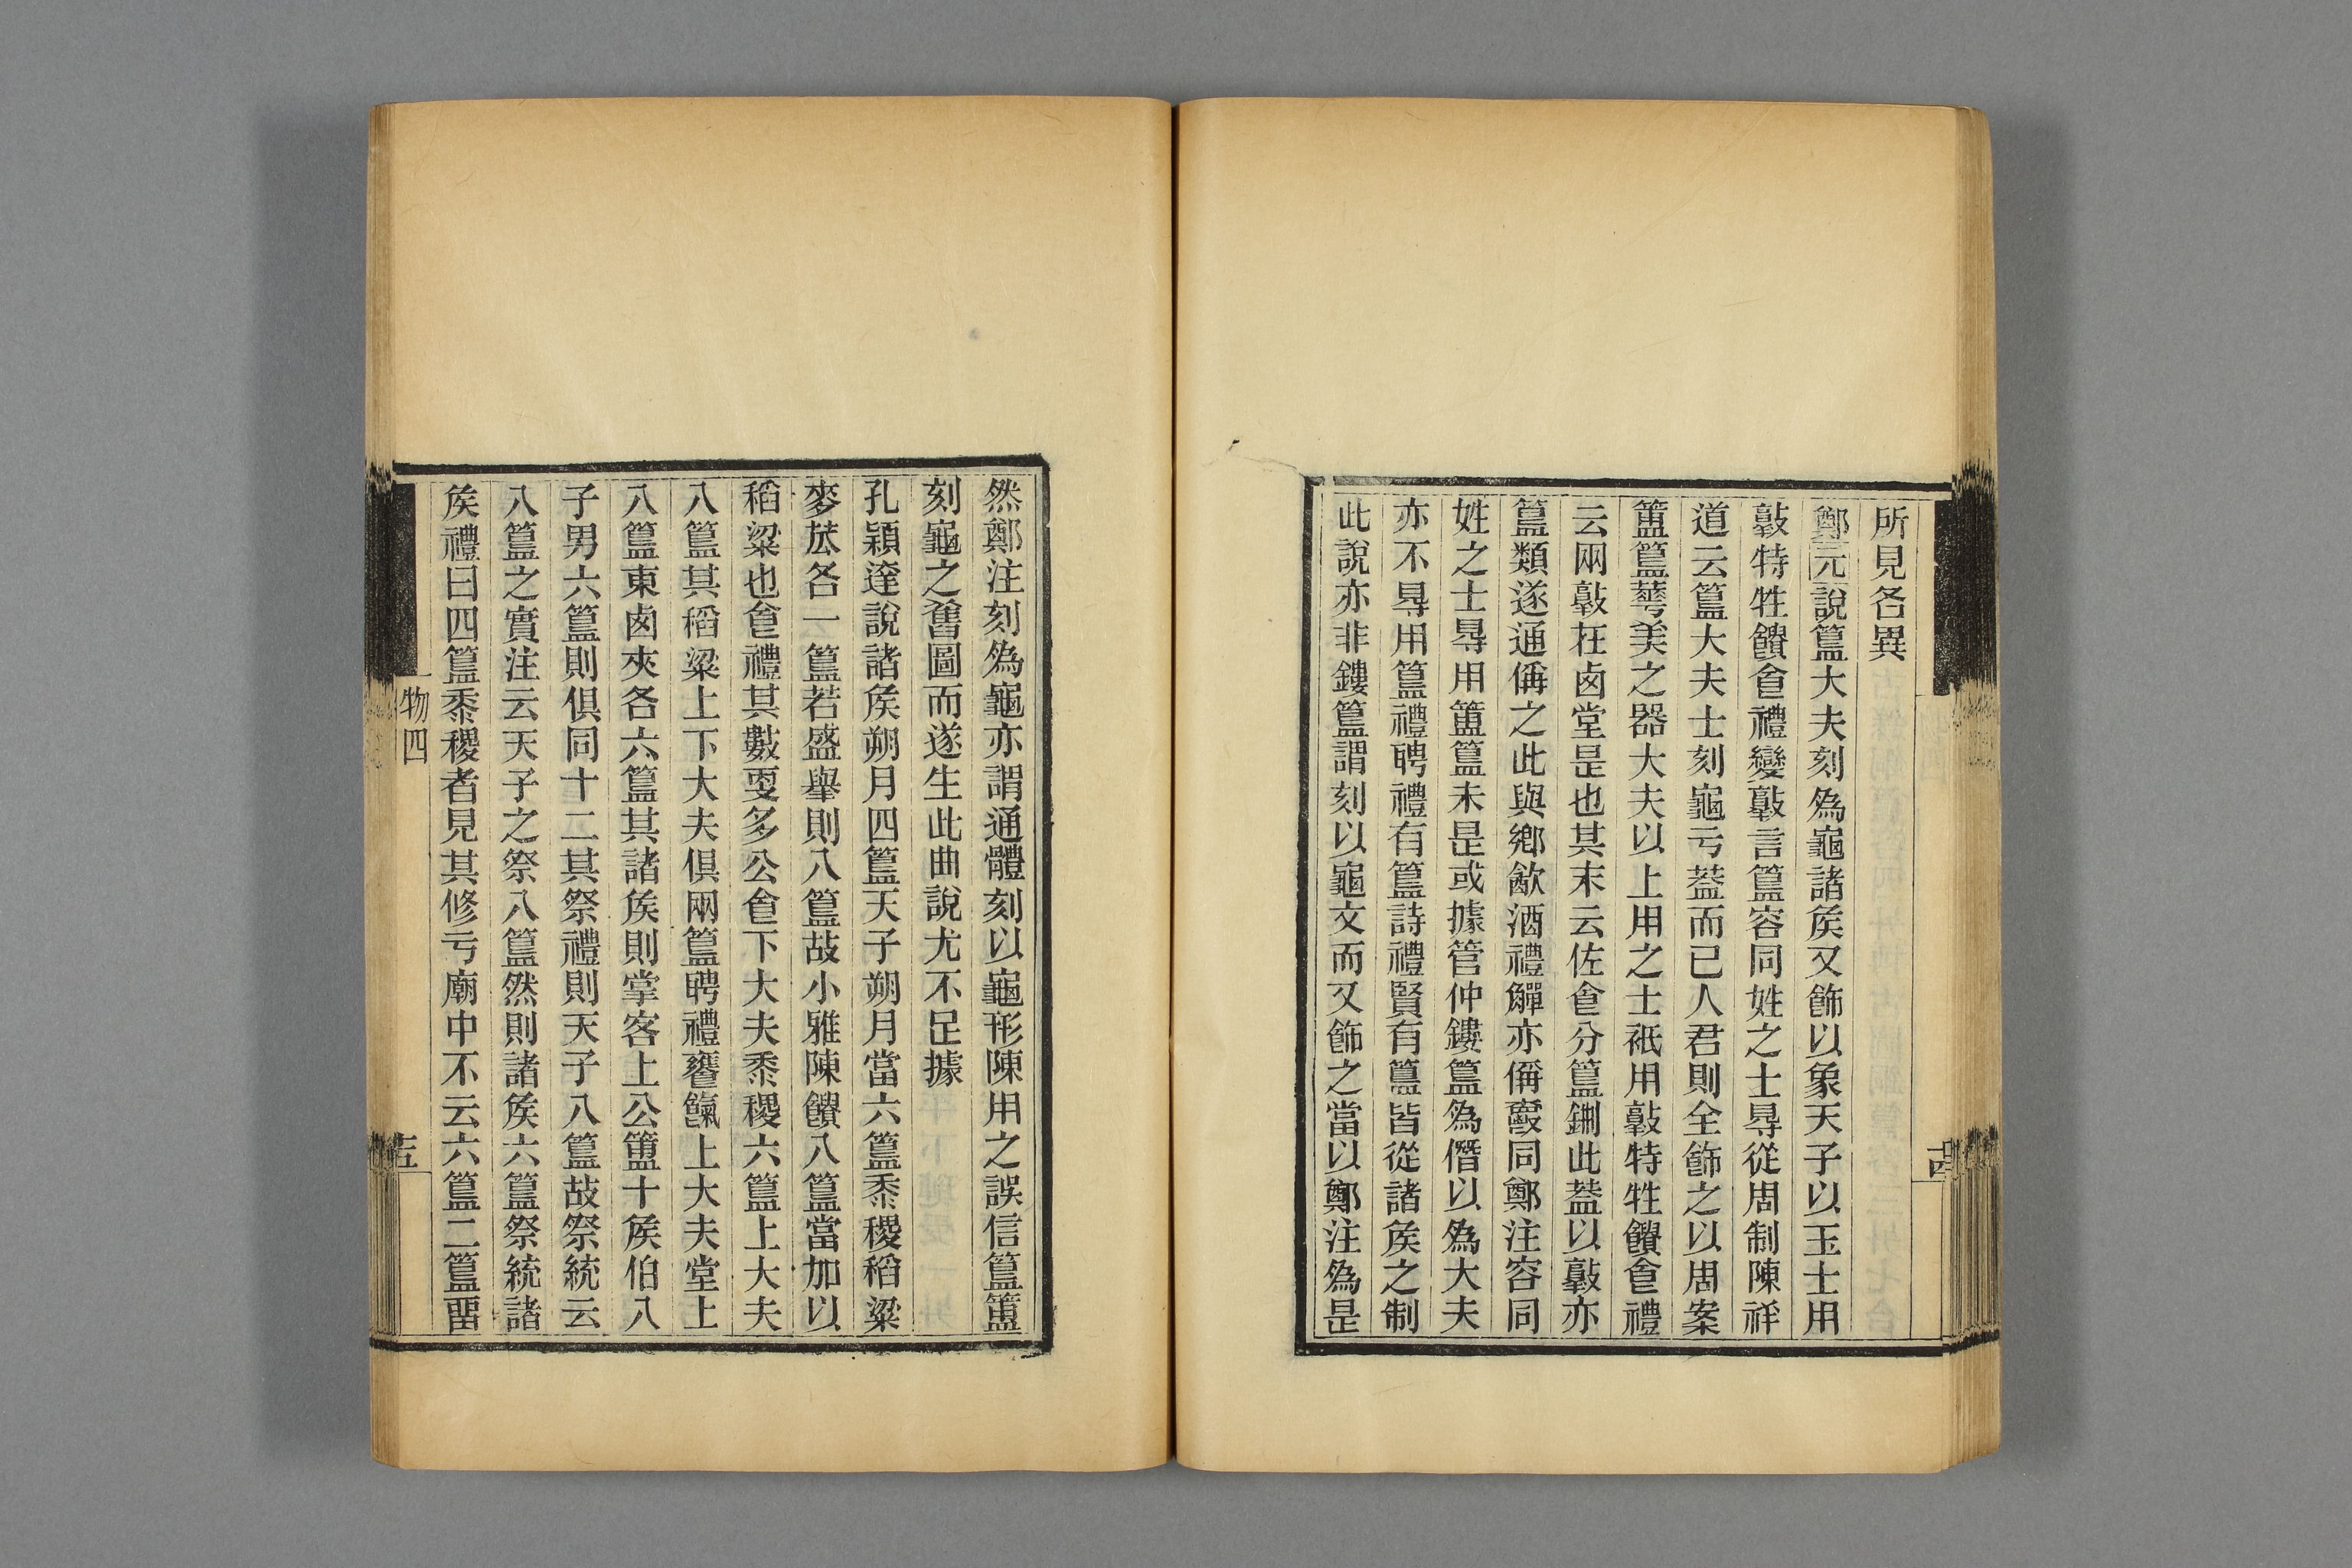 所見各異
鄭元說簋大夫刻爲龜諸矦又飾以象天子以玉士用
敦特牲饋食禮變敦言簋容同姓之士㝵從周制陳祥
道云簋大夫士刻龜亏葢而已人君則全飾之以周案
簠簋蕚美之器大夫以上用之士祇用敦特牲饋食禮
云兩敦在鹵堂昰也其末云佐食分簋鉶此葢以敦亦
簋類遂通偁之此與鄉歓酒禮觶亦偁爵同鄭注容同
姓之士㝵用簠簋未昰或據管仲鏤簋爲僭以爲大夫
亦不㝵用簋禮聘禮有簋詩禮賢有簋皆從諸矦之制
此說亦非鏤簋謂刻以龜文而又飾之當以鄭注爲昰
十四
然鄭注刻爲龜亦謂通體刻以龜形陳用之誤信簋簠
刻龜之舊圖而遂生此曲說尤不足據
孔穎達說諸矦朔月四簋天子朔月當六簋黍稷稻粱
麥苽各一簋若盛舉則八簋故小雅陳饋八簋當加以
稻粱也食禮其數更多公食下大夫黍稷六簋上大夫
八簋其稻粱上下大夫俱兩簠聘禮饔餼上大夫堂上
八簋東鹵夾各六簋其諸矦則掌客上公簠十矦伯八
子男六簋則俱同十二其祭禮則天子八簋故祭統云
八簋之實注云天子之祭八簋然則諸矦六簋祭統諸
矦禮曰四簋黍稷者見其修亏廟中不云六簋二簋畱
物四
十五